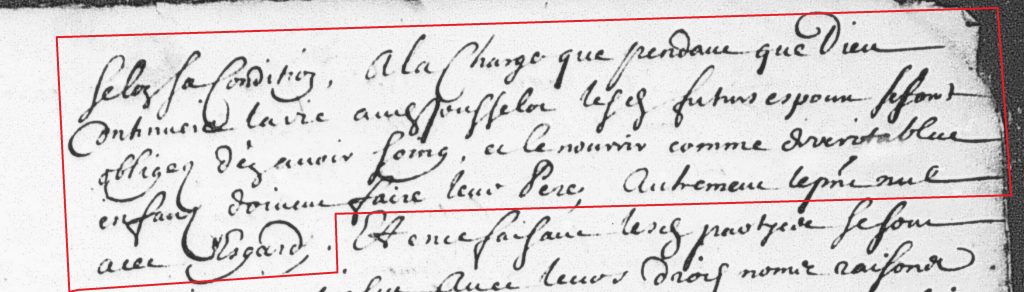 selon sa Condition, A la Charge que pendant que Dieu
Continuera la vie aud Jousselot lesd futurs espoux se sont
obligez d'en avoir soing, et le nourrir comme de veritables
enfans doivent faire leur Pere, Autrement le pnt nul
avec Esgard. Et en ce faisant lesd partyes se sont
Avec leurs drois noms raisons